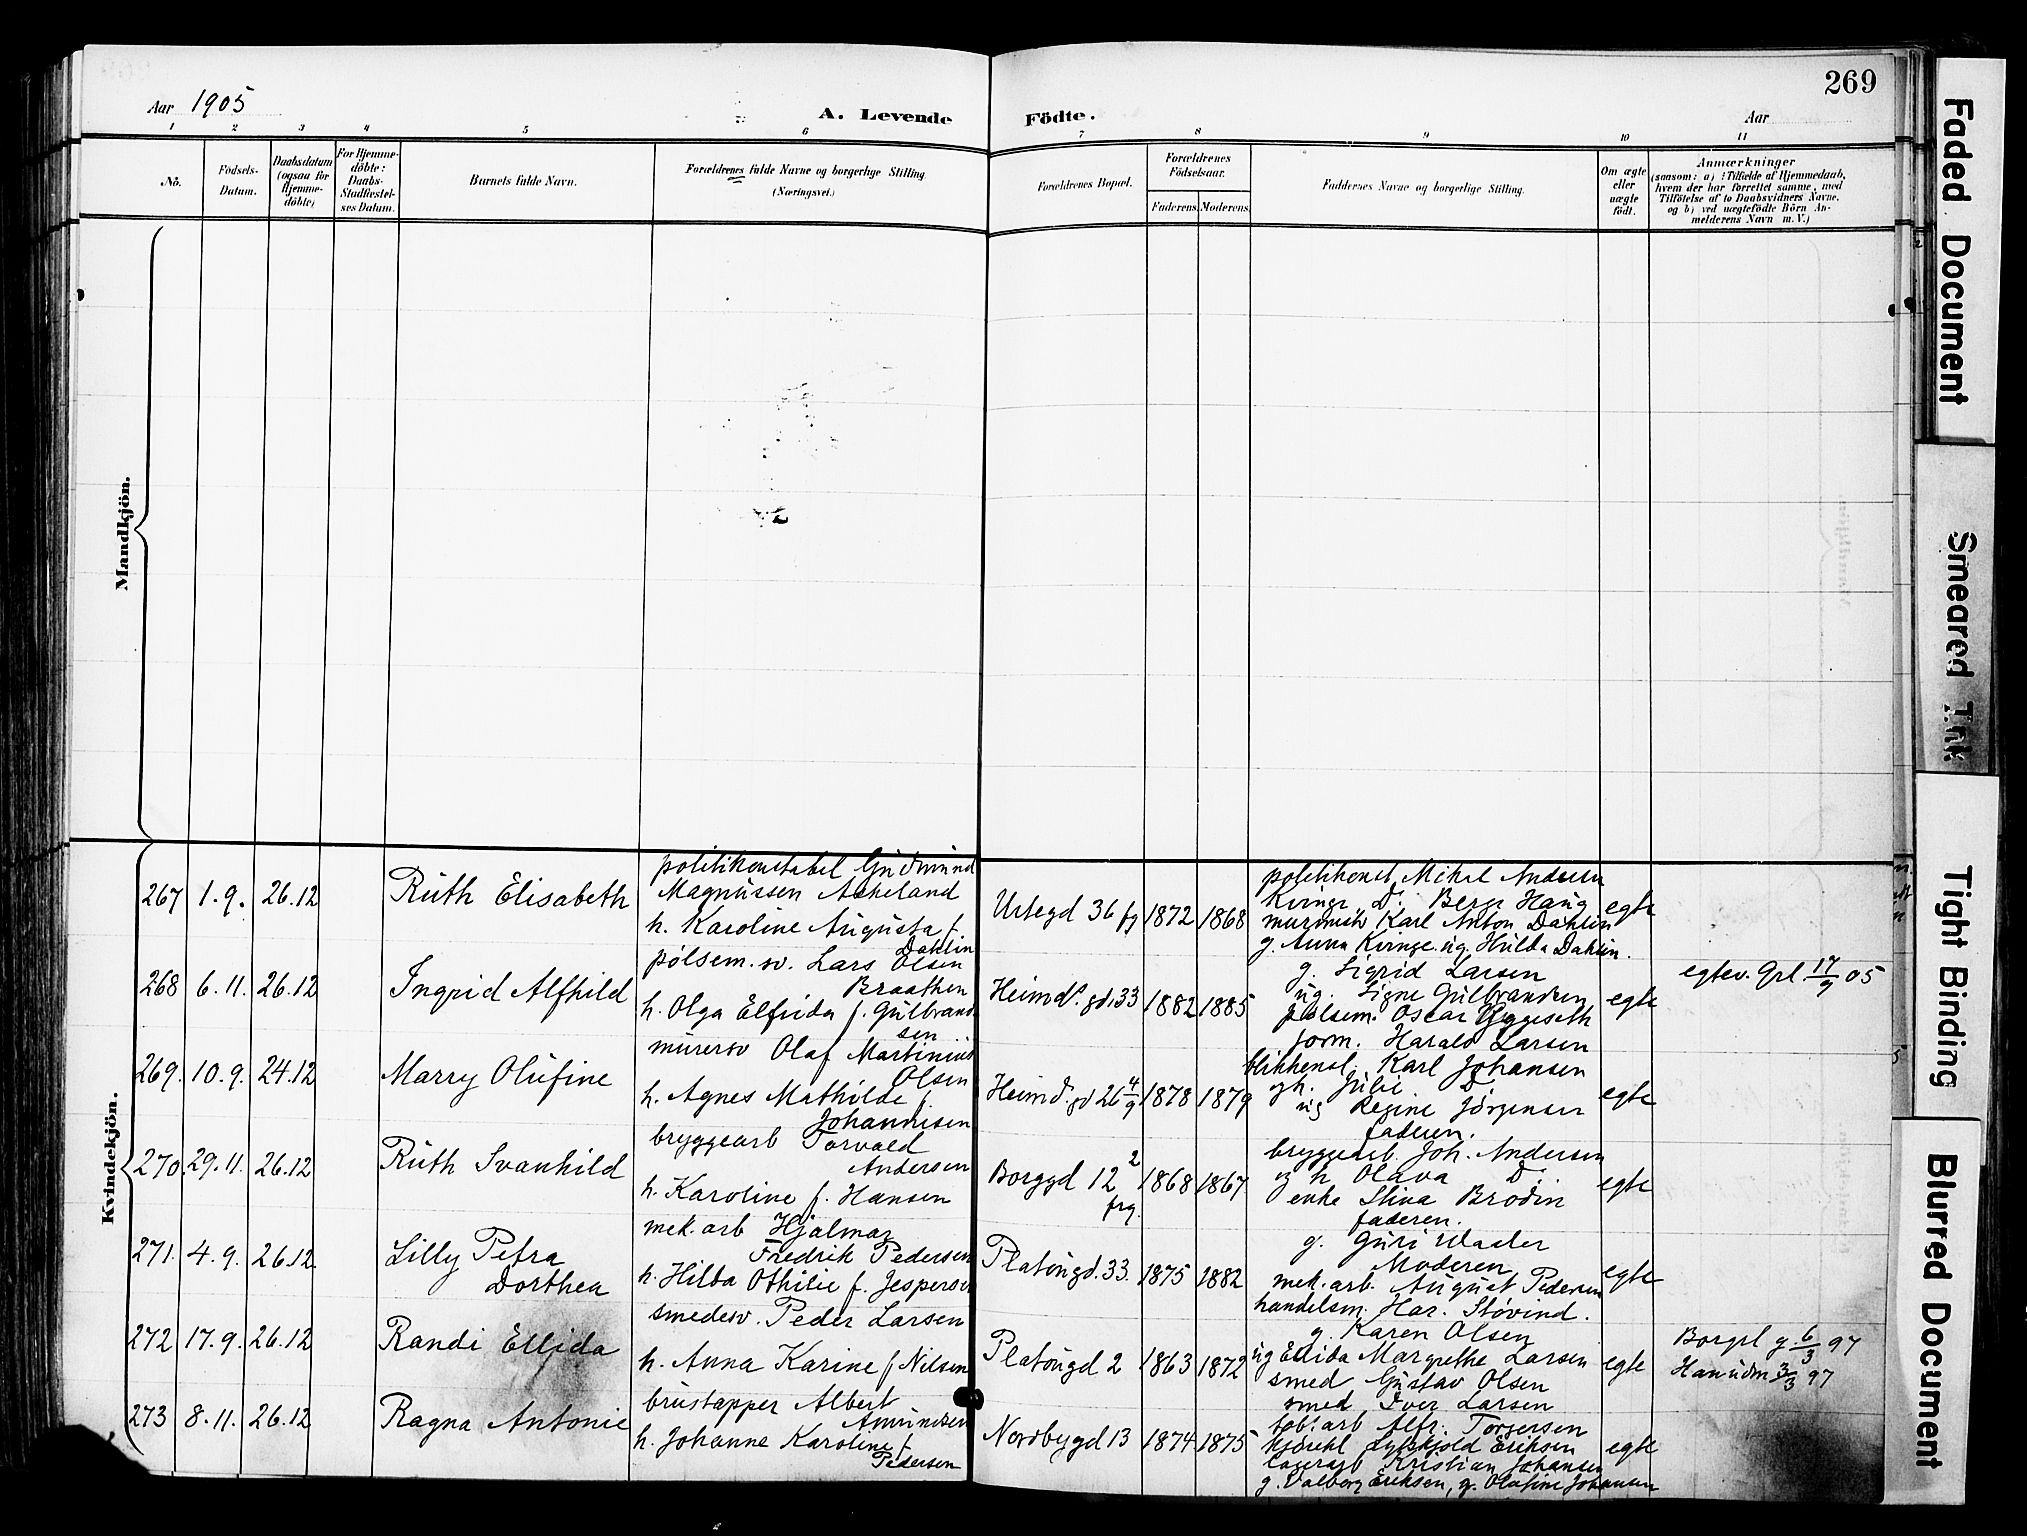 269
Aar 1905
A. Levende Födte.
Aar
1 2 3 4 5 6 7 8 9 10 11
No.
Födsels-Datum.
Daabsdatum (ogsaa for Hjemme-döbte)
For Hjemme-döbte: Daabs-Stadfæstel-ses Datum.
Barnets fulde Navn.
Forældrenes fulde Navne og borgerlige Stilling.
(Næringsvei.)
Forældrenes Bopæl.
Forældrenes Födselsaar.
Faderens. Moderens.
Faddernes Navne og borgerlige Stilling.
Om ægte eller uægte födt.
Anmærkninger
(saasom: a) i Tilfælde af Hjemmedaab,
hvem der har forrettet samme, med
Tilföielse af to Daabsvidners Navne,
og b) ved uægtefödte Börn An-
melderens Navn m. V.)
Mandkjön.
Kvindekjön.
267 1.9. 26.12 Ruth Elisabeth
politikonstabel Gudmund
Magnussen Askeland
h. Karoline Augusta f.
Dahlin
Urtegd 36 fg 1872 1868
politikonst. Mikal Andersen
Kvinge, D. Berge Haug
murmstr Karl Anton Dahlin
g. Anna Kvinge. ug. Hulda Dahlin.
egte
268 6.11. 26.12 Ingrid Alfhild
pølsem.sv. Lars Olsen
Braathen
h. Olga Elfrida f. Gulbrand
sen
Heimds.gd.33 1882 1885
g. Sigrid Larsen
ug. Signe Gulbrandsen
pølsem. Oscar Yggeseth
form. Harald Larsen
egte
egtev. Grl. 17/9 05
269. 10.9. 24.12 Marry Olufine
murersv Olaf Martinius
Olsen
h. Agnes Mathilde f.
Johannisen
Heimd.gd 26 4/9 1878 1879
blikkensl. Karl Johansen
gh. Julie D.
ug Regine Jørgensen
faderen.
egte
270. 29.11. 26.12 Ruth Svanhild
bryggearb Torvald
Andersen
h. Karoline f. Hansen
Borggd 12 2 frg. 1868 1867
bryggearb. Joh. Andersen
og h Olava D.
enke Stina Brodin
faderen.
egte
271. 4.9. 26.12. Lilly Petra
Dorthea
mek.arb Hjalmar
Fredrik Pedersen
h. Hilda Othilie f. Jespersen
Platougd.33. 1875 1882
g. Guri Waaler
Moderen
mek.arb. August Pedersen
handelsm. Har. Støvind.
egte
272 17.9. 26.12 Randi Ellida
smedesv. Peder Larsen
h. Anna Karine f Nilsen
Platougd 2 1863 1872
g. Karen Olsen
ug Elida Margrethe Larsen
smed Gustav Olsen
smed Iver Larsen
egte
Borgrl g 6/3 97
Hanudm 3/3 97
273 8.11. 26.12 Ragna Antonie
brustapper Albert
Amundsen
h. Johanne Karoline f.
Pedersen
Nordbygd 13 1874 1875
tob.arb Alfr. Torgersen
Eriksen
Kristian Johansen
g. Valborg Eriksen, g. Olafine Johansen
egte
Faded Document
Smeared Ink
Tight Binding
Blurred Document